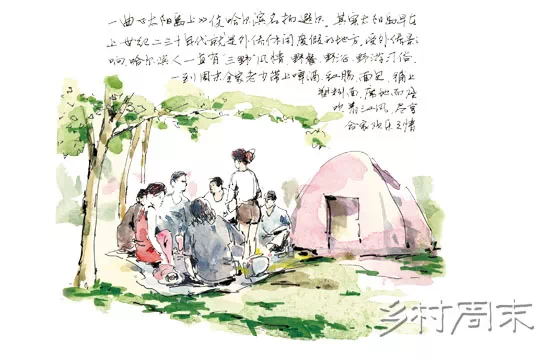 一曲《太阳岛上》使哈尔滨名扬遐尔。其实太阳岛早在
上世纪二三十年代就是外侨休闲度假的地方，受外侨影
响，哈尔滨人一直有"三野"风情，野餐、野浴、野游习俗。
一到周末全家老少带上啤酒、红肠、面包、铺上
塑料面，席地而座
吹着江风，尽享
合家欢乐之情
乡村周末